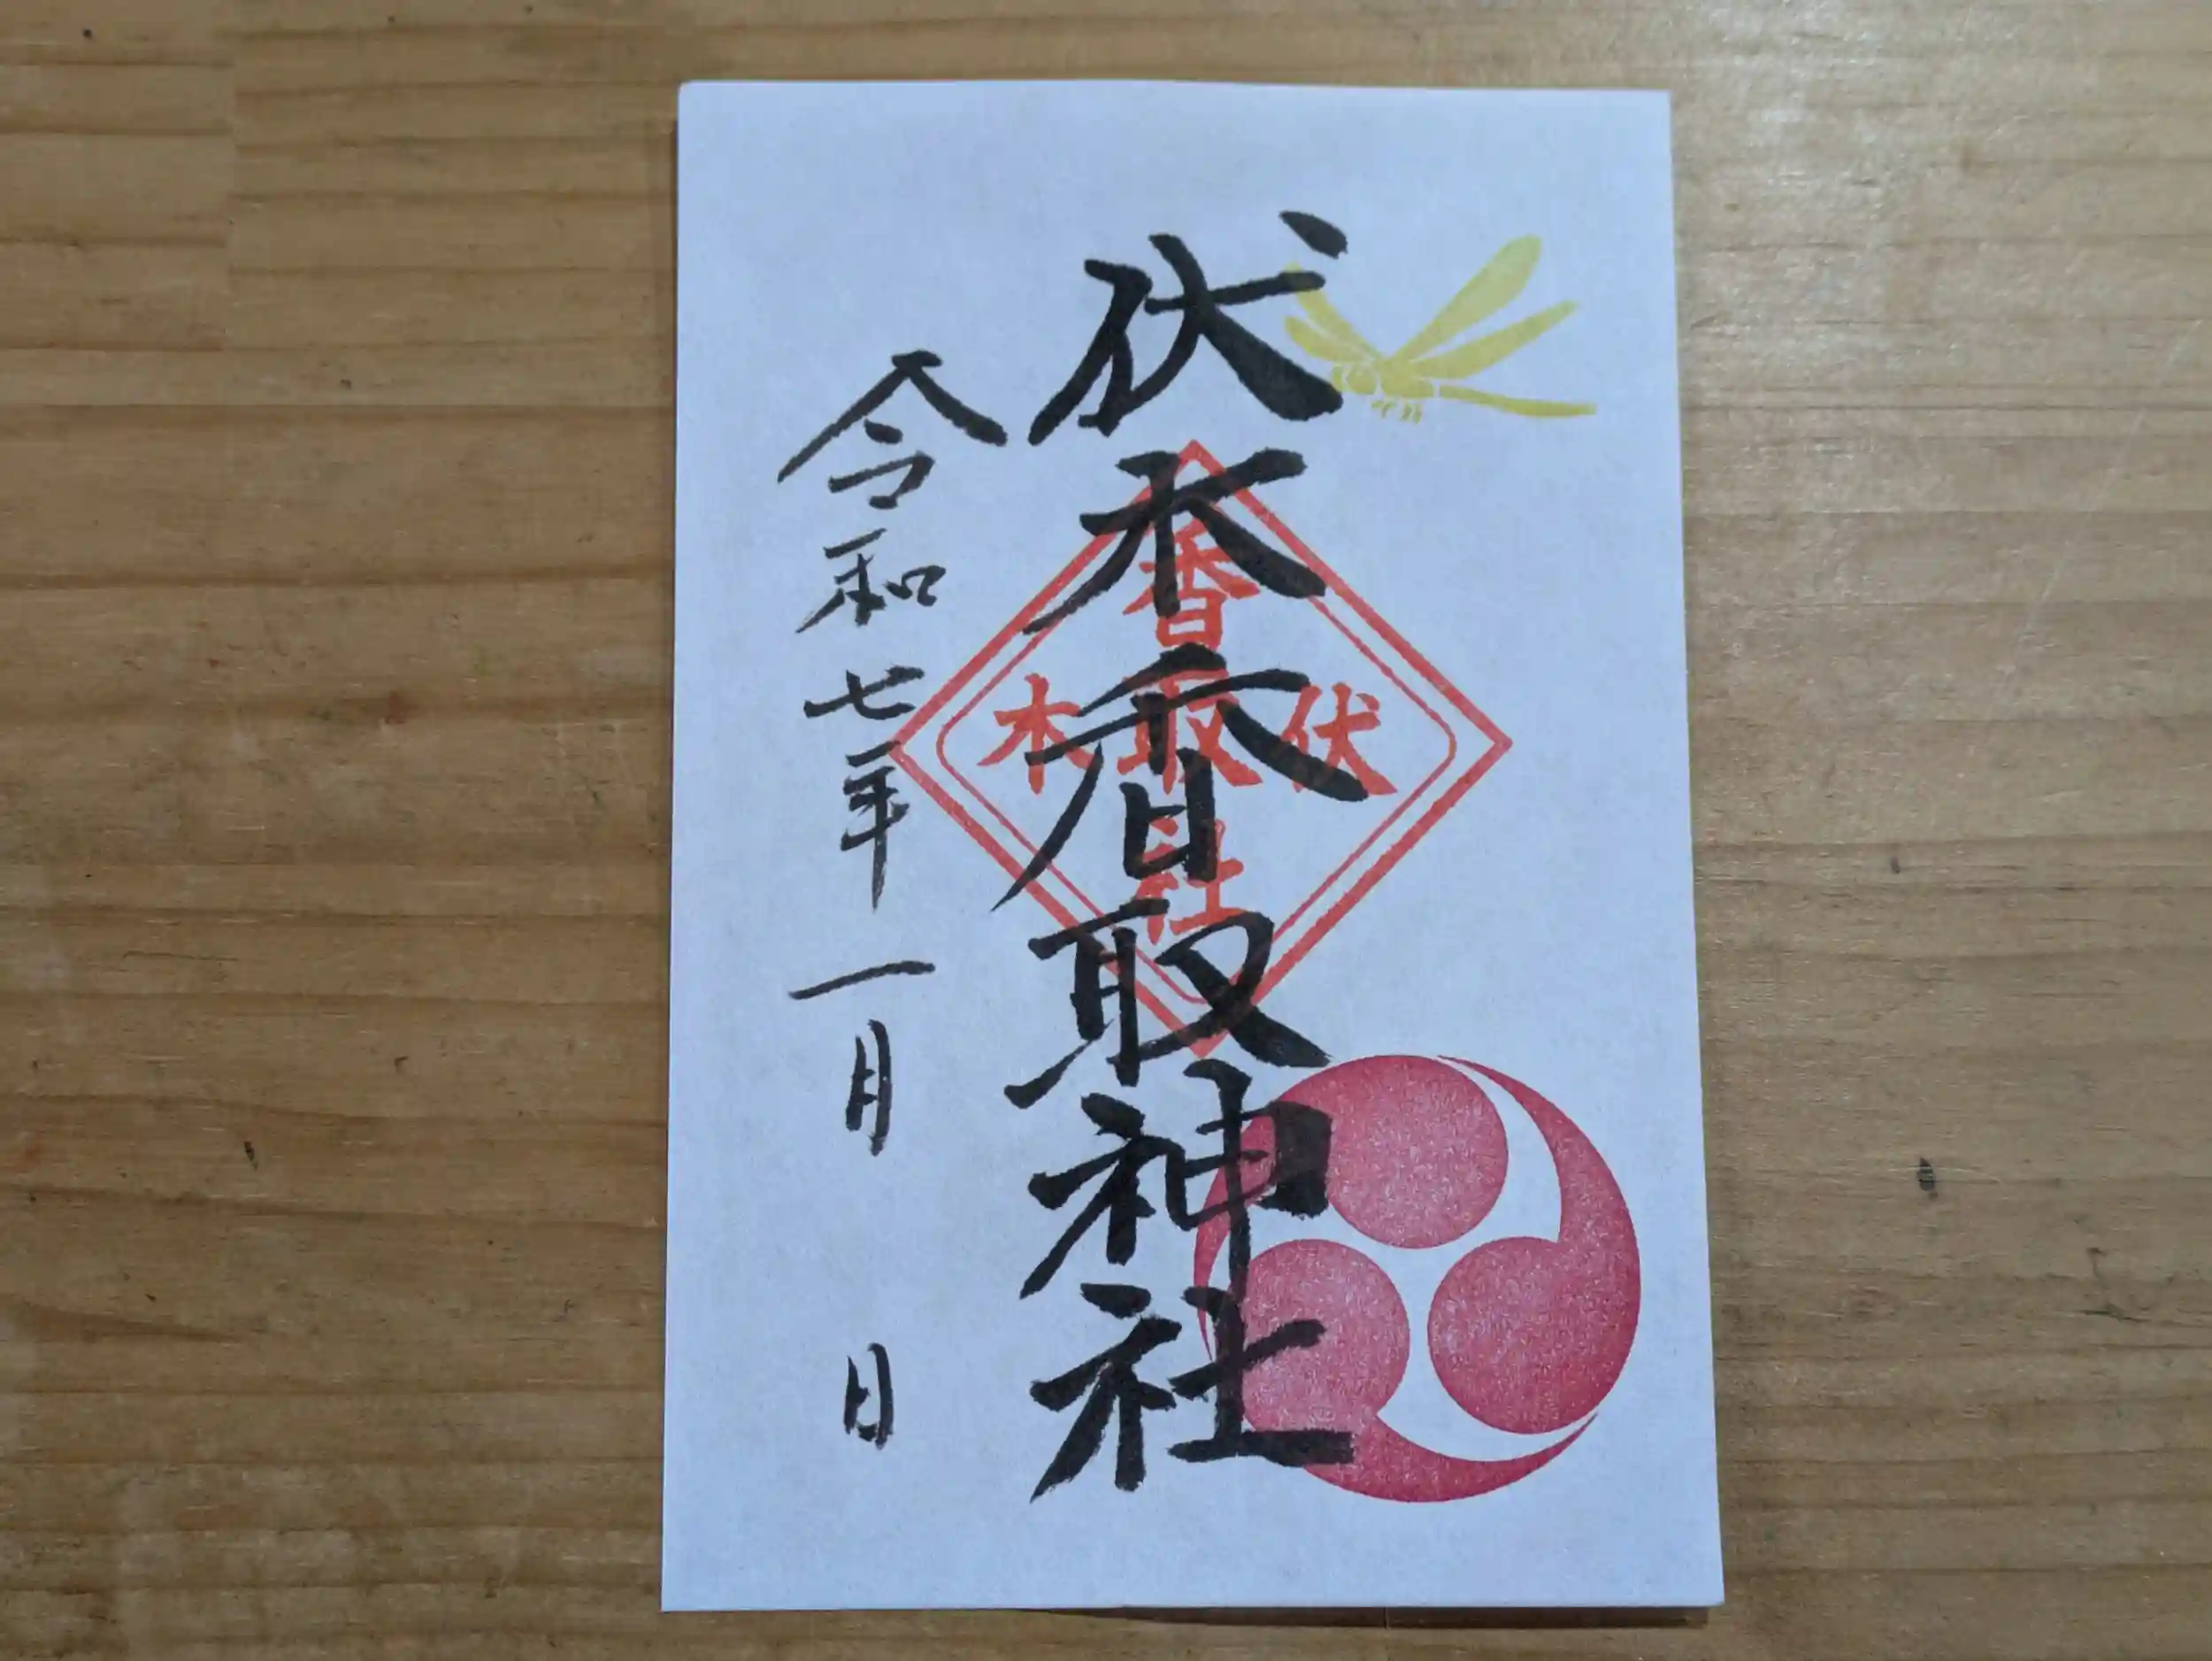 伏木香取神社
香取社
伏木
令和七年一月 日